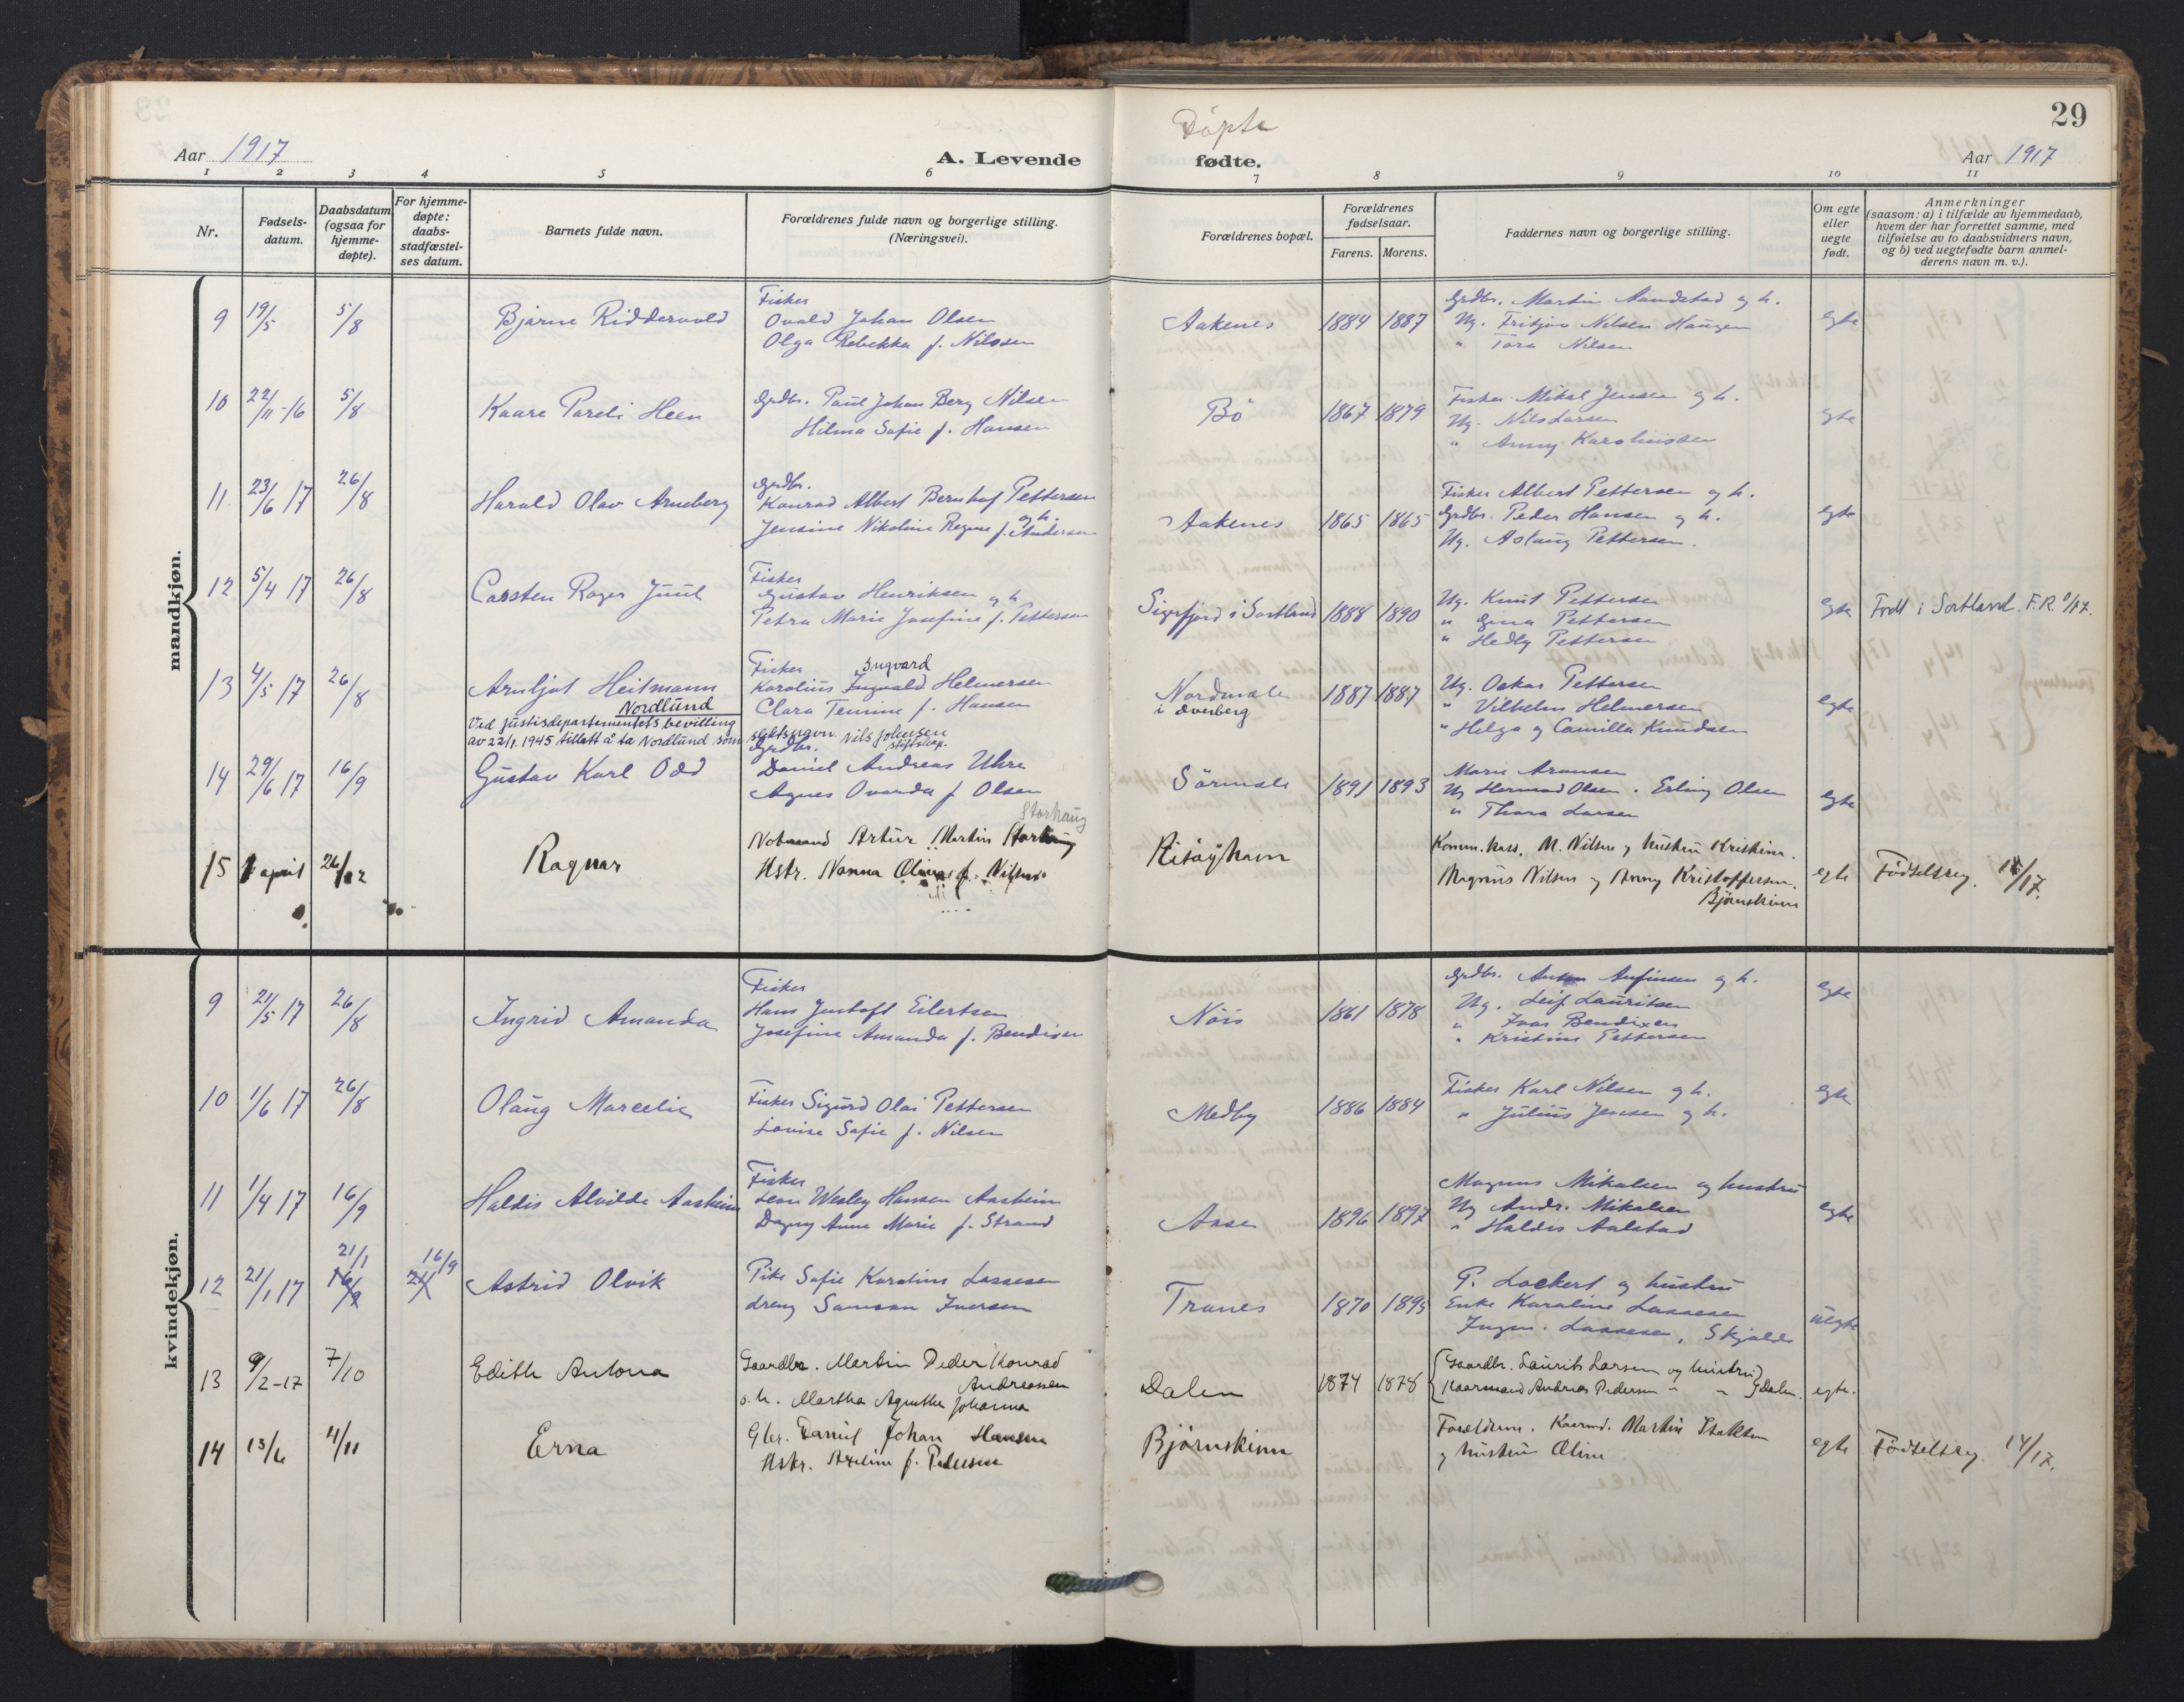 Døpte
29
Aar 1917
A. Levende fødte.
Aar 1917
1 2 3 4 5 6 7 8 9 10 11
Nr.
Fødsels-
datum.
Daabsdatum
(ogsaa for
hjemme-
døpte).
For hjemme-
døpte:
daabs-
stadfæstel-
ses datum.
Barnets fulde navn.
Forældrenes fulde navn og borgerlige stilling.
(Næringsvei).
Forældrenes bopæl.
Forældrenes
fødselsaar.
Farens. Morens.
Faddernes navn og borgerlige stilling.
Om egte
eller
uegte
født.
Anmerkninger
(saasom: a) i tilfælde av hjemmedaab,
hvem der har forrettet samme, med
tilføielse av to daabsvidners navn,
og b) ved uegtefødte barn anmel-
derens navn m. v.).
mandkjøn.
9 19/5 5/8 Bjarne Riddervold
Fisker
Ovald Johan Olsen
Olga Rebekka f. Nilssen
Aakenes 1884 1887
Grdbr. Martin Aandstad og h.
Ug. Fritjov Nilsen Haugen
" Tora Nilsen
egte
10 22/11-16 5/8 Kaare Pareli Heen
Grdbr. Paul Johan Berg Nilsen
Hilma Sofie f. Hansen
Bö 1867 1879
Fisker Mikal Jensen og h.
Ug. Nils Larsen
" Anny Karoliussen
egte
11 23/6 17 26/8 Harald Olav Arneberg
Grdbr.
Konrad Albert Bernhof Pettersen
og h.
Jensine Nikoline Regine f. Andersen
Aakenes 1865 1865
Fisker Albert Pettersen og h.
Grdbr. Peder Hansen og h.
Ug. Aslaug Pettersen.
egte
12 5/4 17 26/8 Carsten Roger Juul
Fisker
Gustav Henriksen og h
Petra Marie Josefine f. Pettersen
Sigerfjord i Sortland 1888 1890
Ug. Knut Pettersen
" Gina Pettersen
" Hedly Pettersen
egte Født i Sortland. F.R.
13 4/5 17 26/8 Arnljot Heitmann
Nordlund
Ved justisdepartementets bevilling
av 22/1. 1945 tillatt å ta Nordlund som slektsnavn Nils Johnsen
stiftskap.
Fisker
Ingvard
Karolius Ingvald Helmersen
Clara Temine f. Hansen
Nordmele
i Dverberg
1887 1887
Ug. Oskar Pettersen
" Vilhelm Helmersen
" Helga og Camilla Knudsen
egte
14 29/6 17 16/9 Gustav Karl Odd
Grdbr.
Daniel Andreas Uhre
Agnes Ovarda f. Olsen
Sörmele 1891 1893
Marie Aronsen
Ug Hermod Olsen. Erling Olsen
" Thora Larsen
egte
15 1 april 26/12 Ragnar
Storhaug
Notmand Artur Martin Storhaug
Hstr. Nanna Oline f. Nilsen
Risøyhavn
Komm.kass. M. Nilsen og hustru Kristine.
Magnus Nilsen og Anny Kristoffersen.
Bjørnskinn
egte Födselsreg. 11/17.
kvindekjøn.
9 21/5 17 26/8 Ingrid Amanda
Fisker
Hans Jentoft Eilertsen
Josefine Amanda f. Bendixen
Nöis 1861 1878
Grdbr. Anton Anfinsen og h.
Ug. Leif Lauritsen
" Ivar Bendixen
" Kristine Pettersen
egte
10 1/6 17 26/8 Olaug Marcelie
Fisker Sigurd Olai Pettersen
Lovise Sofie f. Nilsen
Medby 1886 1884
Fisker Karl Nilsen og h.
" Julius Jensen og h.
egte
11 1/4 17 16/9 Haldis Alvilde Aasheim
Fisker
Leon Wesley Hansen Aasheim
Dagny Anne Marie f. Strand
Aase 1896 1897
Magnus Mikalsen og hustru
Ug Andr. Mikalsen
" Haldis Aalstad
egte
12 21/1 17 21/1 16/9 16/9 21/1 Astrid Olvik
Pike Sofie Karoline Lassesen
dreng Samson Iversen
Tranes 1870 1895
P. Lockert og hustru
Enke Karoline Lassesen
Ingm. Lassesen, Skjolde
uegte
13 9/2-17 7/10 Edith Antona
Gaardbr. Martin Peder Konrad
Andreassen
o. h. Martha Agnethe Johanna
Dalen 1874 1878
Gaardbr. Laurits Larsen og hustru
Kaarmand Andreas Pedersen " " Dalen.
egte.
14 13/6 4/11 Erna
Gbr. Daniel Johan Hansen
Hstr. Axeline f. Pedersen
Bjørnskinn
Forældrene. Kaarmd. Martin
og hustru Oline
egte Födselsreg. 14/17.